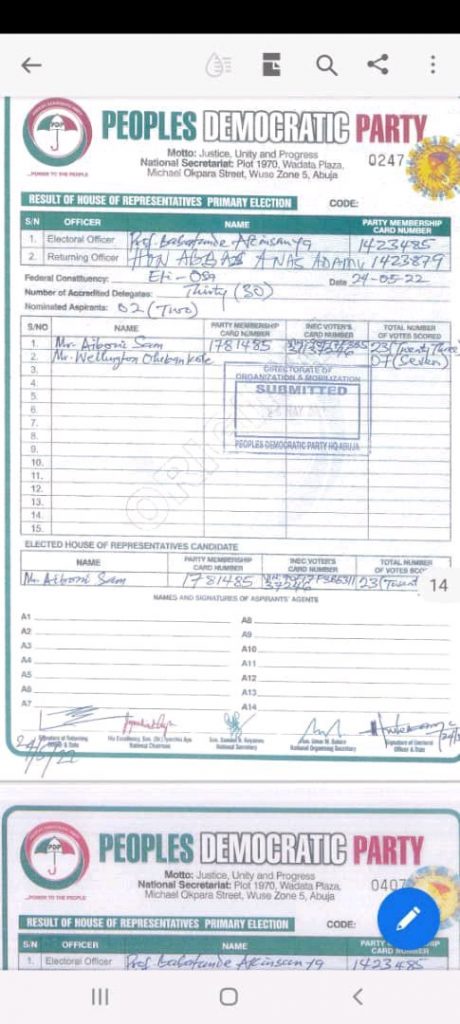 PDP
...POWER TO THE PEOPLE
PEOPLES DEMOCRATIC PARTY
Motto: Justice, Unity and Progress
National Secretariat: Plot 1970, Wadata Plaza,
Michael Okpara Street, Wuse Zone 5, Abuja
0247
RESULT OF HOUSE OF REPRESENTATIVES PRIMARY ELECTION CODE:
S/N OFFICER NAME PARTY MEMBERSHIP CARD NUMBER
1. Electoral Officer Prof. Babatunde 1423485
2. Returning Officer HON ABBAS ANAS ADAMU 1423879
Federal Constituency: Eti-Osa Date 24-05-22
Number of Accredited Delegates: Thirty (30)
Nominated Aspirants: 02 (Two)
S/NO NAME PARTY MEMBERSHIP CARD NUMBER INEC VOTER'S CARD NUMBER TOTAL NUMBER OF VOTES SCORED
1. Mr. Aiboni Sam 1781485 23 (Twenty Three
2. Mr. Wellington 07 (Seven)
3.
4.
5.
6.
7.
8.
9.
10.
11.
12.
13.
14.
15.
DIRECTORATE OF
ORGANIZATION & MOBILIZATION
SUBMITTED
PEOPLES DEMOCRATIC PARTY HQ ABUJA
ELECTED HOUSE OF REPRESENTATIVES CANDIDATE
NAME PARTY MEMBERSHIP CARD NUMBER INEC VOTER'S CARD NUMBER TOTAL NUMBER OF VOTES
Mr. Aiboni Sam 1781485 37246 23
14
NAMES AND SIGNATURES OF ASPIRANTS' AGENTS
A1 A8
A2 A9
A3 A10
A4 A11
A5 A12
A6 A13
A7 A14
24/5/22
Signature of Returning Officer & Date
National Chairman
National Secretary
National Organising Secretary
Signature of Electoral Officer & Date
PDP
...POWER TO THE PEOPLE
PEOPLES DEMOCRATIC PARTY
Motto: Justice, Unity and Progress
National Secretariat: Plot 1970, Wadata Plaza,
Michael Okpara Street, Wuse Zone 5, Abuja
0407
RESULT OF HOUSE OF REPRESENTATIVES PRIMARY ELECTION CODE:
S/N OFFICER NAME
1. Electoral Officer Prof. Babatunde 1423485